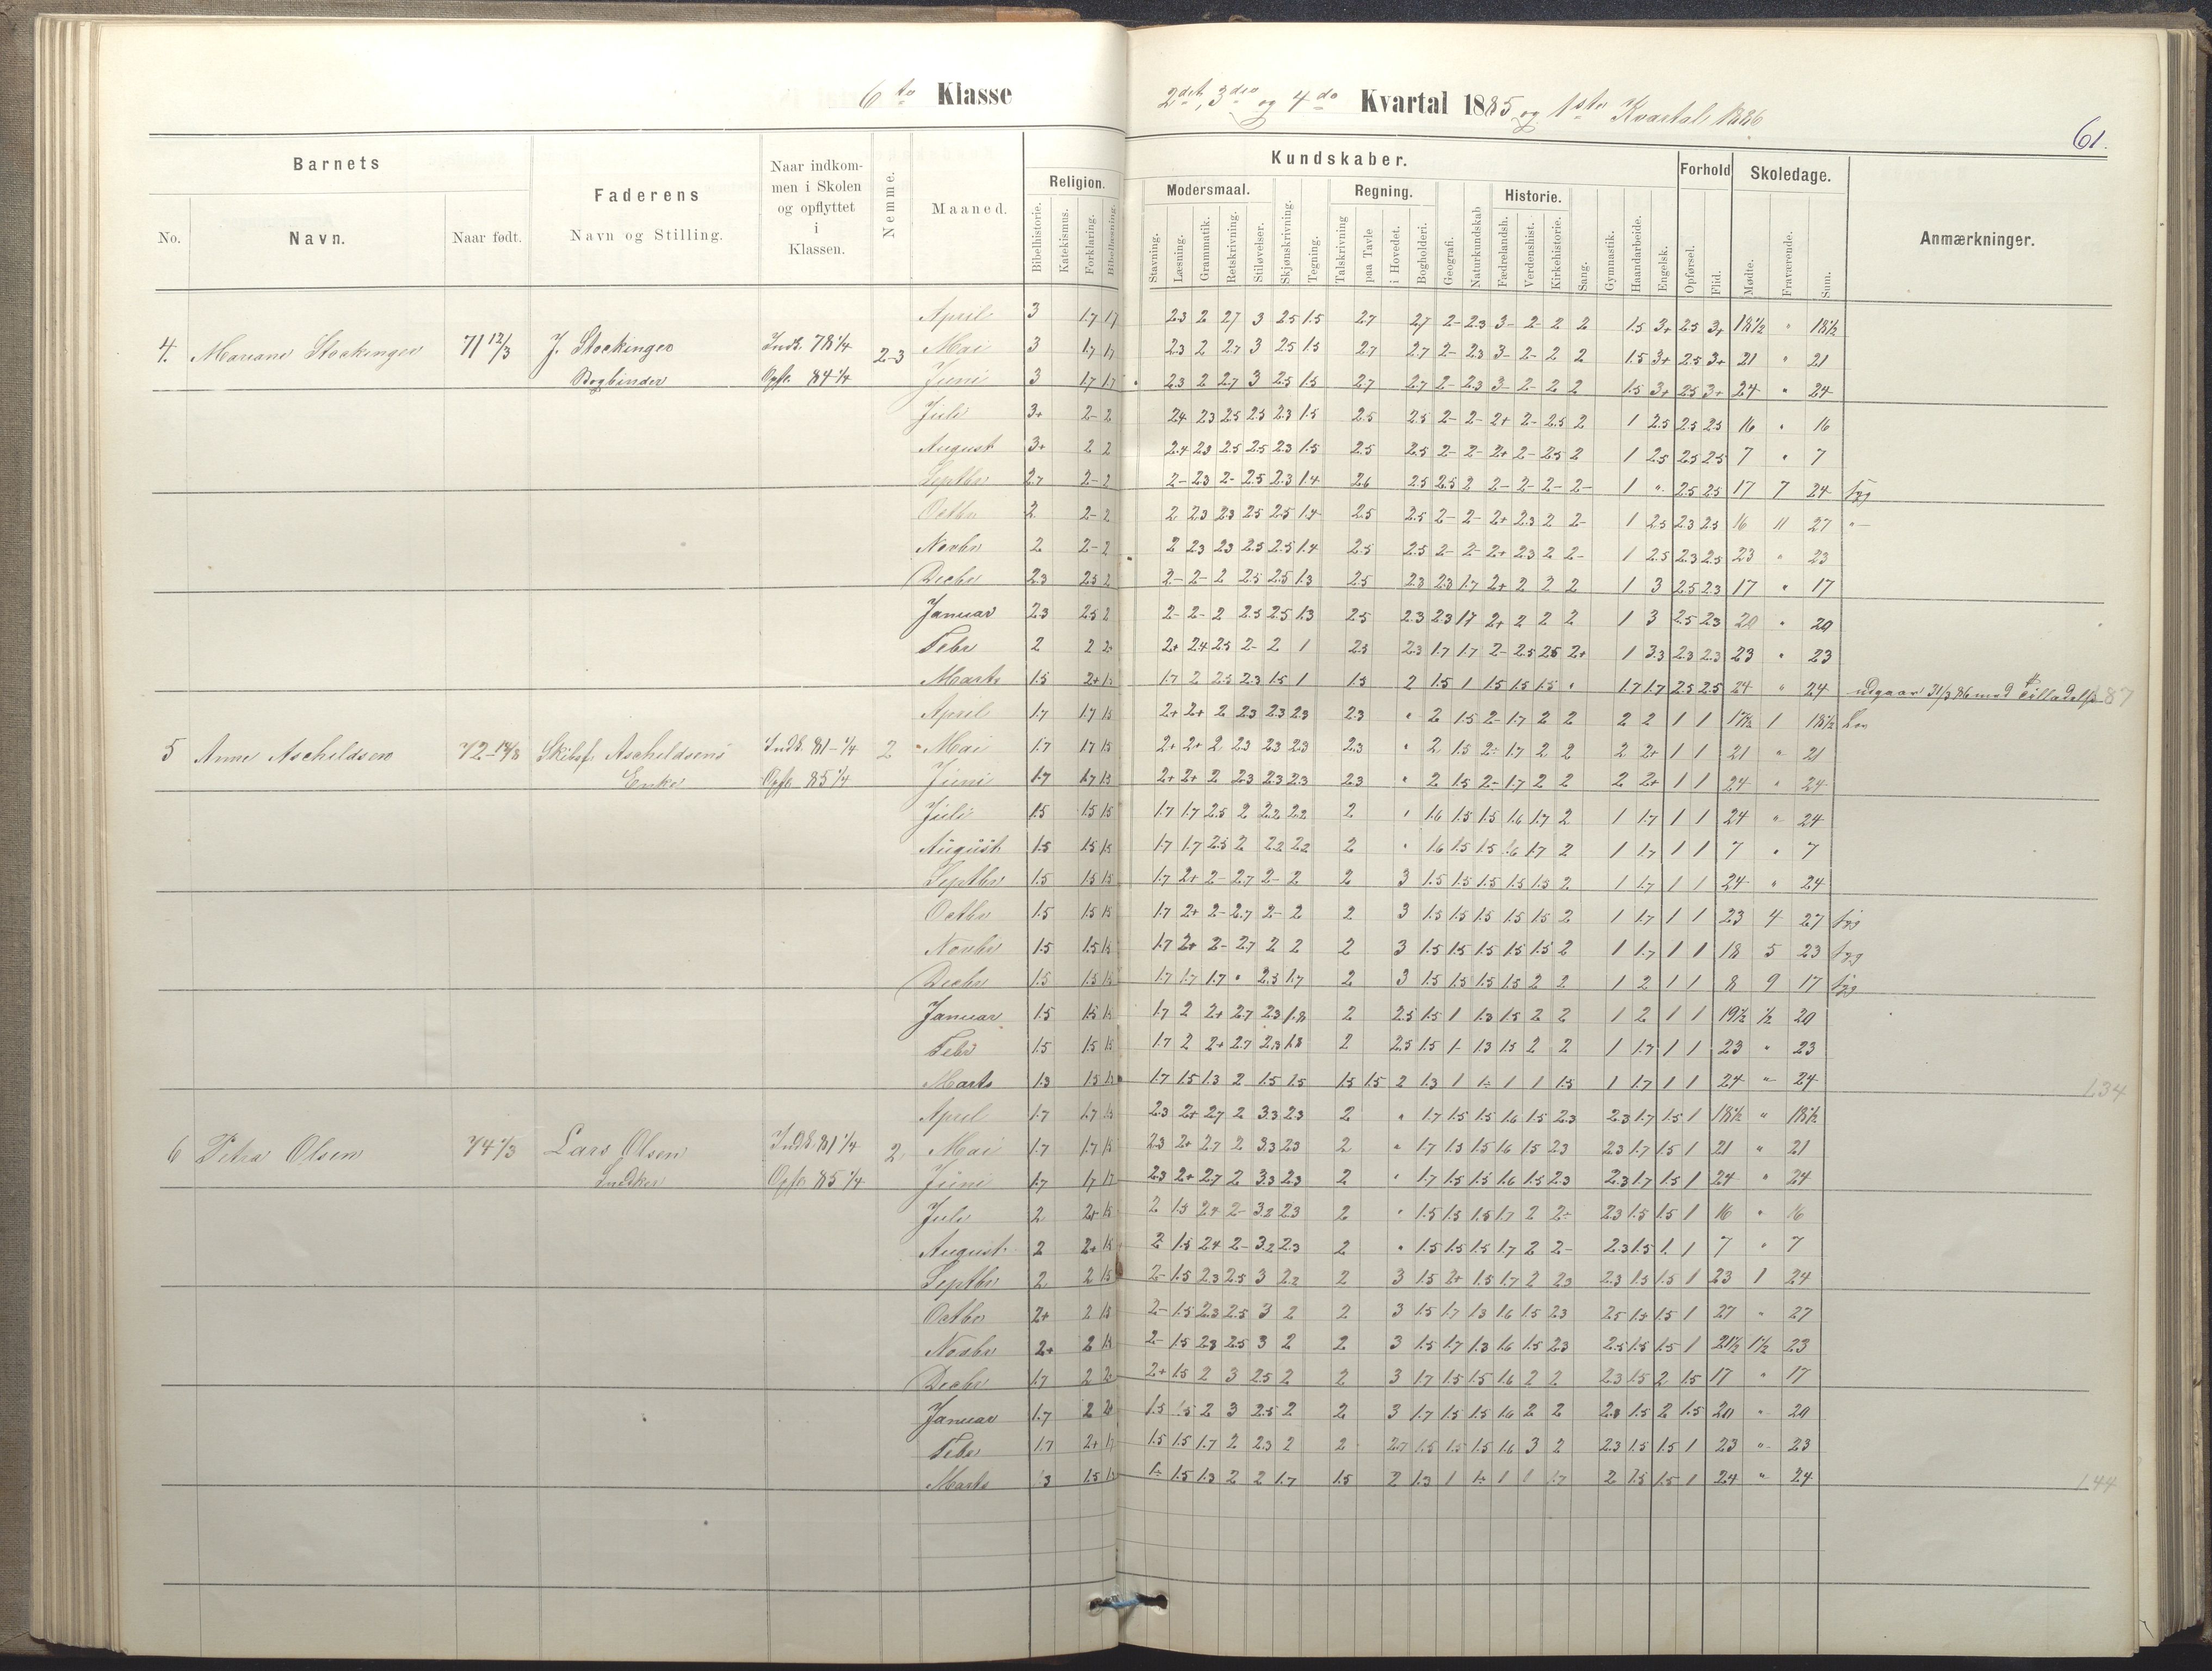 6te Klasse
2det, 3die og 4de Kvartal 1885 og 1ste Kvartal 1886
61.
Barnets
Faderens
Naar indkommen i Skolen og opflyttet i Klassen.
Nemme.
Maaned.
Kundskaber.
Forhold
Skoledage.
Anmærkninger.
Religion.
Modersmaal.
Regning.
Historie.
No.
Navn.
Naar født.
Navn og Stilling.
Bibelhistorie.
Katekismus.
Forklaring.
Bibellæsning.
Stavning.
Læsning.
Grammatik.
Retskrivning.
Stiløvelser.
Skjønskrivning.
Tegning.
Talskrivning
paa Tavle
i Hovedet.
Bogholderi.
Geografi.
Naturkundskab
Fædrelandsh.
Verdenshist.
Kirkehistorie.
Sang.
Gymnastik.
Haandarbeide.
Engelsk.
Opførsel.
Flid.
Mødte.
Fraværende.
Sum.
April 3 1.7 1.7 2.3 2 2.7 3 2.5 1.5 2.7 2.7 2- 2.3 3- 2- 2 2 1.5 3+ 2.5 3+ 18½ " 18½
4. Mariane Stockinger 71 12/3 J. Stockinger Indk. 78 1/4 2-3 Mai 3 1.7 1.7 2.3 2 2.7 3 2.5 1.5 2.7 2.7 2- 2.3 3- 2- 2 2 1.5 3+ 2.5 3+ 21 " 21
Bogbinder Opfl. 84 1/4 Juni 3 1.7 1.7 2.3 2 2.7 3 2.5 1.5 2.7 2.7 2- 2.3 3- 2- 2 2 1.5 3+ 2.5 3+ 24 " 24
Juli 3+ 2- 2 2.4 2.3 2.5 2.5 2.3 1.5 2.5 2.5 2- 2- 2+ 2- 2.5 2 1 2.5 2.5 2.5 16 " 16
August 3+ 2 2 2.4 2.3 2.5 2.5 2.3 1.5 2.5 2.5 2- 2- 2+ 2- 2.5 2 1 2.5 2.5 2.5 7 " 7
Septbr 2.7 2- 2 2- 2.3 2- 2.5 2.3 1.4 2.6 2.5 2.5 2 2- 2- 2- 2- 1 " 2.5 2.5 17 7 24 Syg
Octbr 2 2- 2 2 2.3 2.3 2.5 2.5 1.4 2.5 2.5 2- 2- 2+ 2.3 2 2- 1 2.5 2.3 2.5 16 11 27 "-
Novbr 2 2- 2 2 2.3 2.3 2.5 2.5 1.4 2.5 2.5 2- 2- 2+ 2.3 2 2- 1 2.5 2.3 2.5 23 " 23
Decbr 2.3 2.5 2 2- 2- 2 2.5 2.5 1.3 2.5 2.3 2.3 1.7 2+ 2 2 2 1 3 2.5 2.3 17 " 17
Januar 2.3 2.5 2 2- 2- 2 2.5 2.5 1.3 2.5 2.3 2.3 1.7 2+ 2 2 2 1 3 2.5 2.3 20 " 20
Febr 2 2 2+ 2+ 2.4 2.5 2- 2 1 2.3 2.3 1.7 1.7 2- 2.5 2.5 2+ 1 3.3 2.3 2.3 23 " 23
Marts 1.5 2+ 1.7 2 2.5 2.3 1.5 1 1.5 2 1.5 1 1.5 1.5 1.5 " 1.7 1.7 2.5 2.5 24 " 24 udgaar 31/3 86 med
April 1.7 1.7 1.5 2+ 2+ 2 2.3 2.3 2.3 2.3 " 2 1.5 2- 1.7 2 2 2 2 1 1 17½ 1 18½
5 Anne Ascheldsen 72 Skibsf. Ascheldsens Indk. 81 1/4 2 Mai 1.7 1.7 1.5 2+ 2+ 2 2.3 2.3 2.3 2.3 " 2 1.5 2- 1.7 2 2 2 2+ 1 1 21 " 21
Enke Opfl. 85 1/4 Juni 1.7 1.7 1.5 2+ 2+ 2 2.3 2.3 2.3 2.3 " 2 1.5 2- 1.7 2 2 2 2+ 1 1 24 " 24
Juli 1.5 1.5 1.5 1.7 1.7 2.5 2 2.2 2.2 2 " 1.6 1.5 1.5 1.6 1.7 2 1 1.7 1 1 24 " 24
August 1.5 1.5 1.5 1.7 1.7 2.5 2 2.2 2.2 2 " 1.6 1.5 1.5 1.6 1.7 2 1 1.7 1 1 7 " 7
Septbr 1.5 1.5 1.5 1.7 2+ 2- 2.7 2- 2 2 3 1.5 1.5 1.5 1.5 1.5 2 1 1.7 1 1 24 " 24
Octbr 1.5 1.5 1.5 1.7 2+ 2- 2.7 2- 2 2 3 1.5 1.5 1.5 1.5 1.5 2 1 1.7 1 1 23 4 27 Syg
Novbr 1.5 1.5 1.5 1.7 2+ 2- 2.7 2 2 2 3 1.5 1.5 1.5 1.5 1.5 2 1 1.7 1 1 18 5 23 Syg
Decbr 1.5 1.5 1.5 1.7 1.7 1.7 " 2.5 1.7 2 3 1.5 1.5 1.5 1.5 2 2 1 2 1 1 8 9 17 Syg
Januar 1.5 1.5 1.5 1.7 2 2+ 2.7 2.3 1.8 2 2.5 1.5 1 1.3 1.5 2 2 1 2 1 1 19½ ½ 20
Febr 1.5 1.5 1.5 1.7 2 2+ 2.7 2.3 1.8 2 2.5 1.5 1- 1.3 1.5 2 2 1 1.7 1 1 23 " 23
Marts 1.3 1.5 1.7 1.5 1.3 2 1.5 1.5 1.5 1.5 2 1.3 1 1- 1 1 1.5 1 1.7 1 1 24 " 24 1.34
April 1.7 1.7 1.5 2.3 2+ 2.7 2 3.3 2.3 2 " 1.7 1.5 1.5 1.6 1.5 2.3 2.3 1.7 1.5 1 18½ " 18½
6 Petra Olsen 74 1/3 Lars Olsen Indk. 81 1/4 2 Mai 1.7 1.7 1.5 2.3 2+ 2.7 2 3.3 2.3 2 " 1.7 1.5 1.5 1.6 1.5 2.3 2.3 1.7 1.5 1 21 " 21
Snedker Opfl. 85 1/4 Juni 1.7 1.7 2.3 2+ 2.7 2 3.3 2.3 2 " 1.7 1.5 1.5 1.6 1.5 2.3 2.3 1.7 1.5 1 24 " 24
Juli 2 2+ 1.5 2 1.5 2.4 2- 3.2 2.3 2 " 1.5 1.5 1.5 1.7 2 2- 2.3 1.5 1.5 1 16 " 16
August 2 2+ 1.5 2 1.5 2.4 2- 3.2 2.3 2 " 1.5 1.5 1.5 1.7 2 2- 2.3 1.5 1. 1 7 " 7
Septbr 2 2 1.5 2- 1.5 2.3 2.5 3 2.2 2 3 1.5 2+ 1.5 1.7 2 2.3 2.3 1.5 1.5 1 23 1 24
Octbr 2+ 2 1.5 2- 1.5 2.3 2.5 3 2 2 3 1.5 1.7 1.3 1.6 1.5 2.3 2.5 1.5 1.5 1 27 " 27
Novbr 2+ 2 1.5 2- 1.5 2.3 2.5 3 2 2 3 1.5 1.7 1.3 1.6 1.5 2.3 2.5 1.5 1.5 1 21½ 1½ 23
Decbr 1.7 2 2 2+ 1.5 2 3 2.5 2 2 3 1.7 1.5 1.5 1.6 2 2 2.3 1.5 2 1.5 17 " 17
Januar 1.7 2 1.5 1.5 2 3 2.5 2 2 3 1.7 1.5 1.5 1.6 2 2 2.3 1.5 2 1.5 20 " 20
Febr 1.7 2+ 1.7 1.5 1.5 1.7 2 2.3 2 2 2.7 1.5 1.5 1.5 1.6 3 2 2.3 1.5 1.5 1 23 " 23
Marts 1.3 1.5 1- 1.5 1.3 2 2 1.7 1.5 2 1.3 1 1- 1 1 1.7 2 1.5 1.5 1 24 " 24 1.44